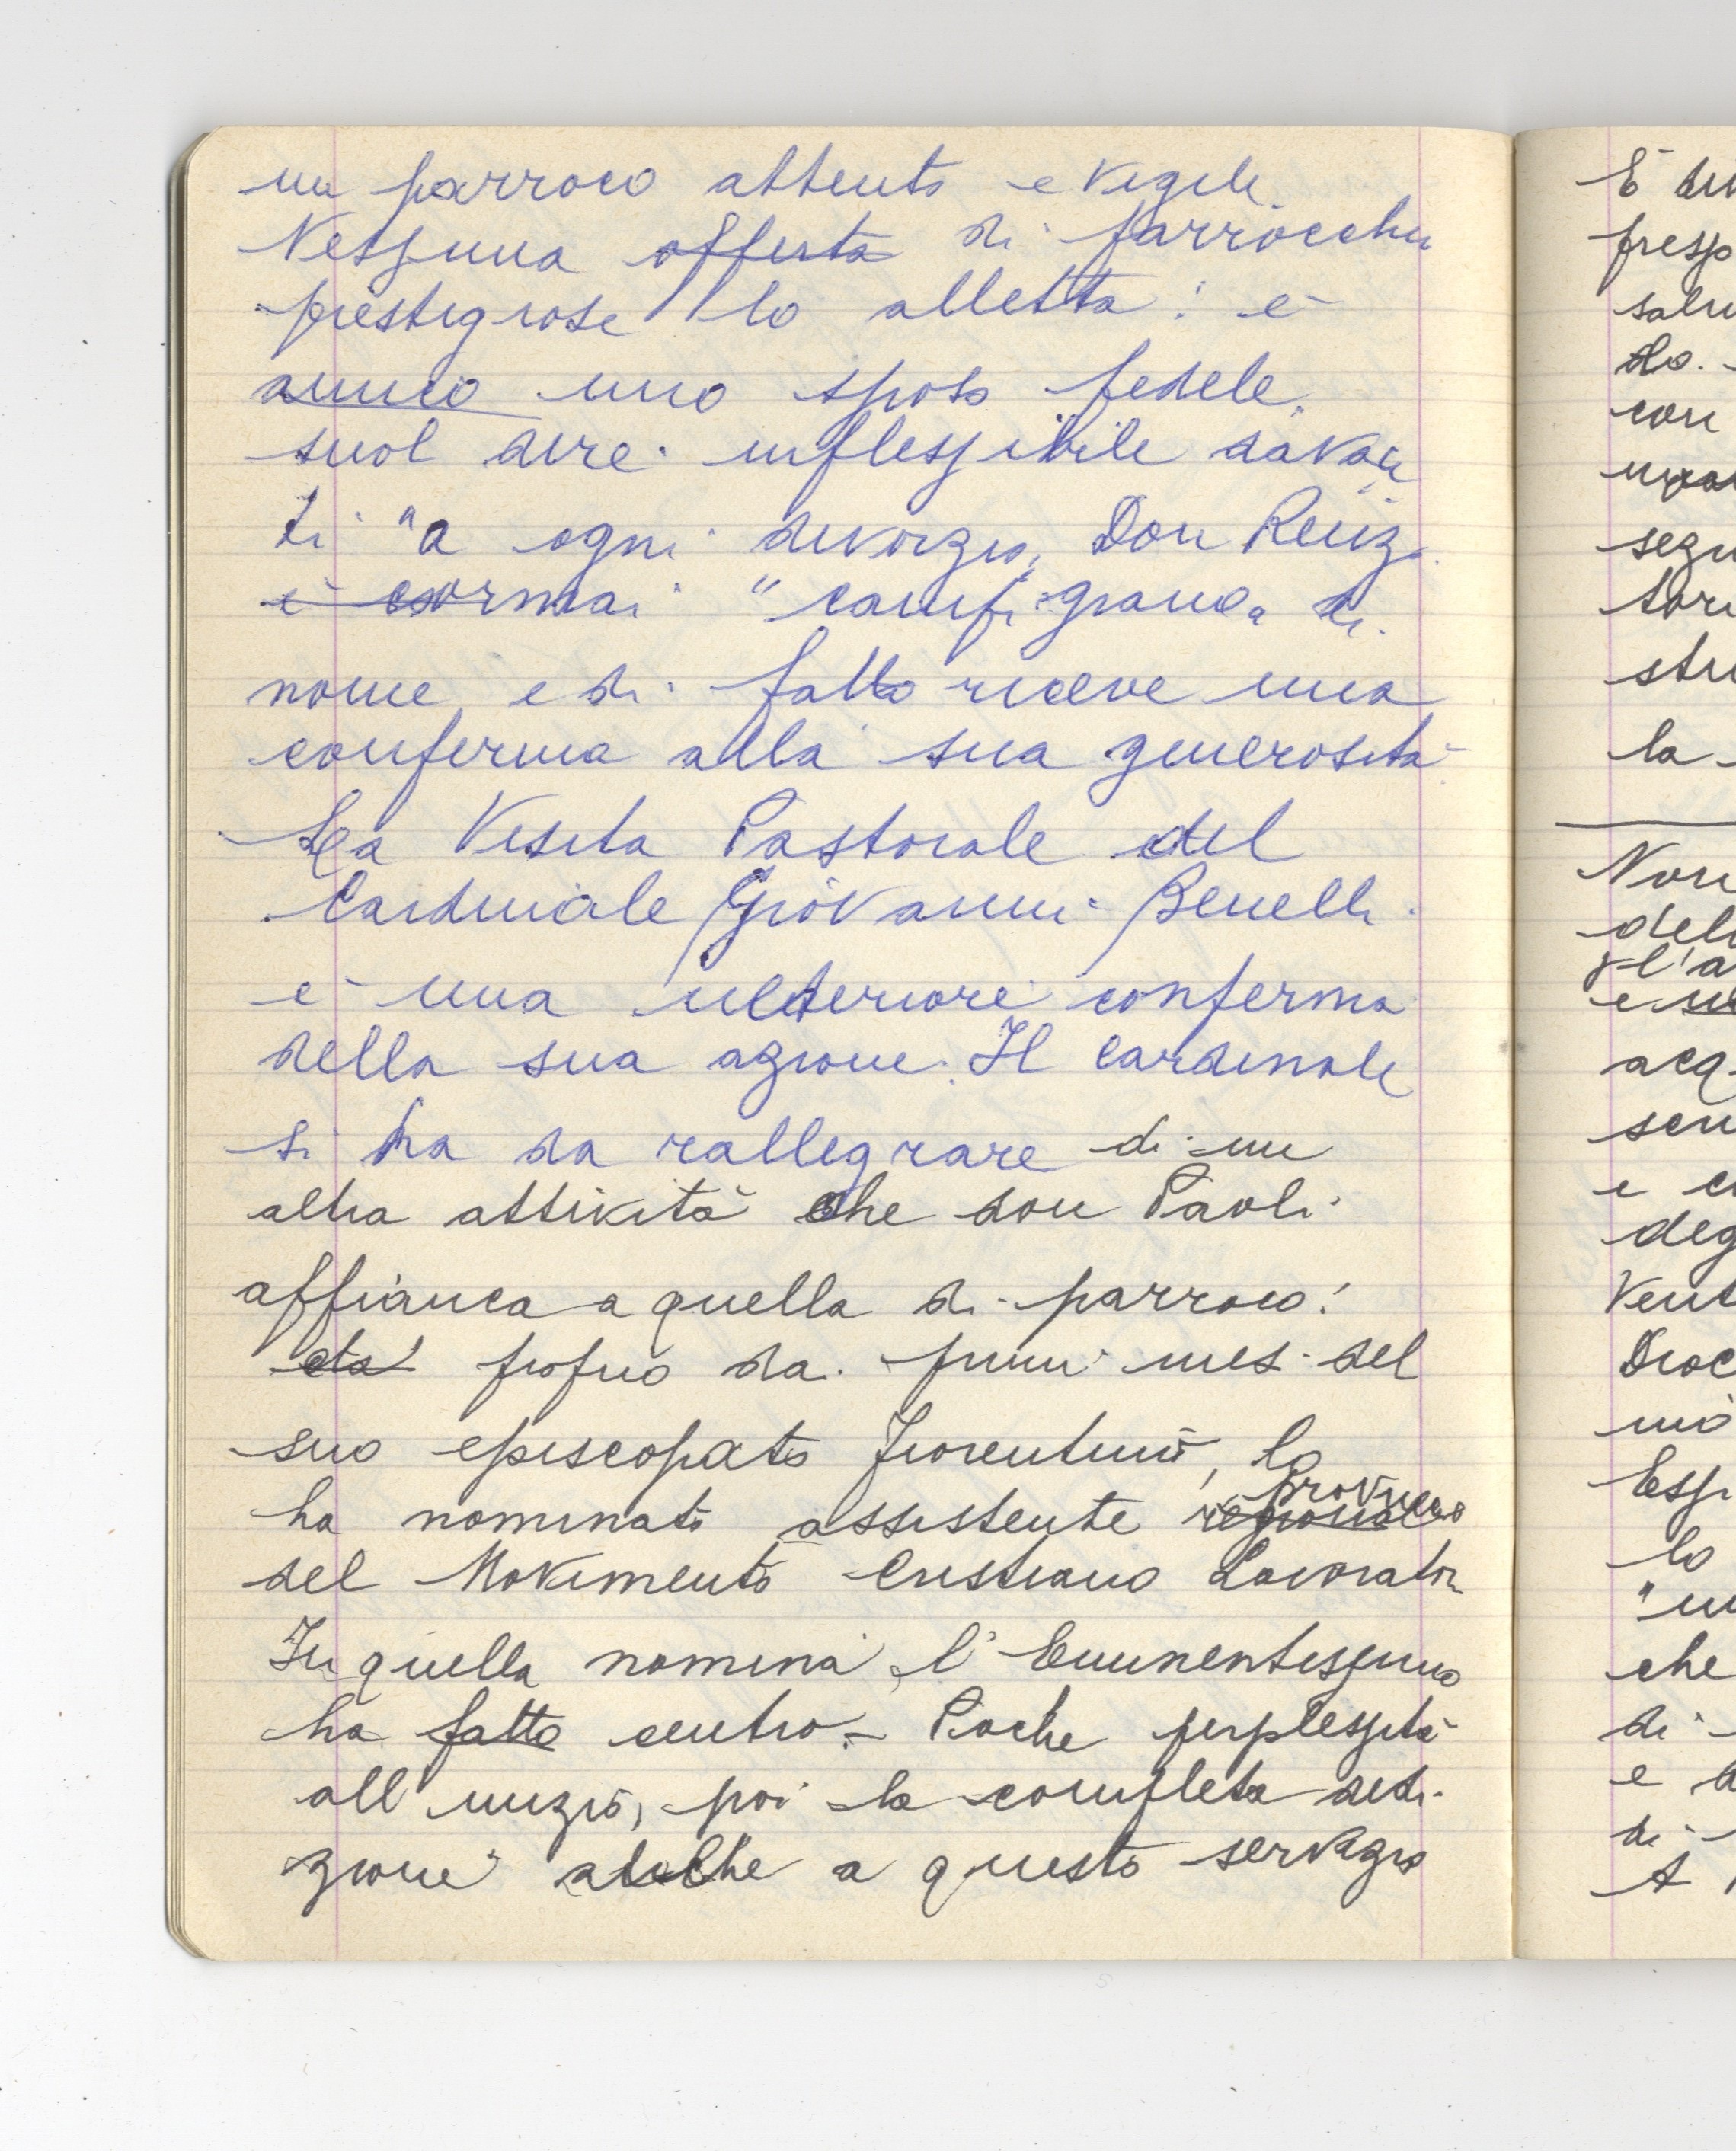 un parroco attento e vigile
Nessuna offerta di parrocchie
prestigiose lo alletta: è
amico uno sposo fedele,
suol dire. inflessibile davan
ti "a ogni divorzio, Don Renzo
è ormai "campigiano" di
nome e di fatto riceve una
conferma alla sua generosità
La Visita Pastorale del
Cardinale Giovanni Benelli
è una ulteriore conferma
della sua azione. Il Cardinale
si ha da rallegrare di un
altra attività che don Paoli
affianca a quella di parroco:
proprio da primi mesi del
suo episcopato fiorentino, lo
provinciale
ha nominato assistente regionale
del Movimento Cristiano Lavoratori
In quella nomina, l'Eminentissimo
ha fatto centro. - Poche perplessità
all'inizio, poi la completa dedi-
zione anche a questo servizio
È
presp
salu
do.
con
segu
tori
stru
la
Non
dell
gl'a
e
acq
sen
e
deg
Vent
Dioc
mo
Esp
lo
"un
che
di
e
di
A